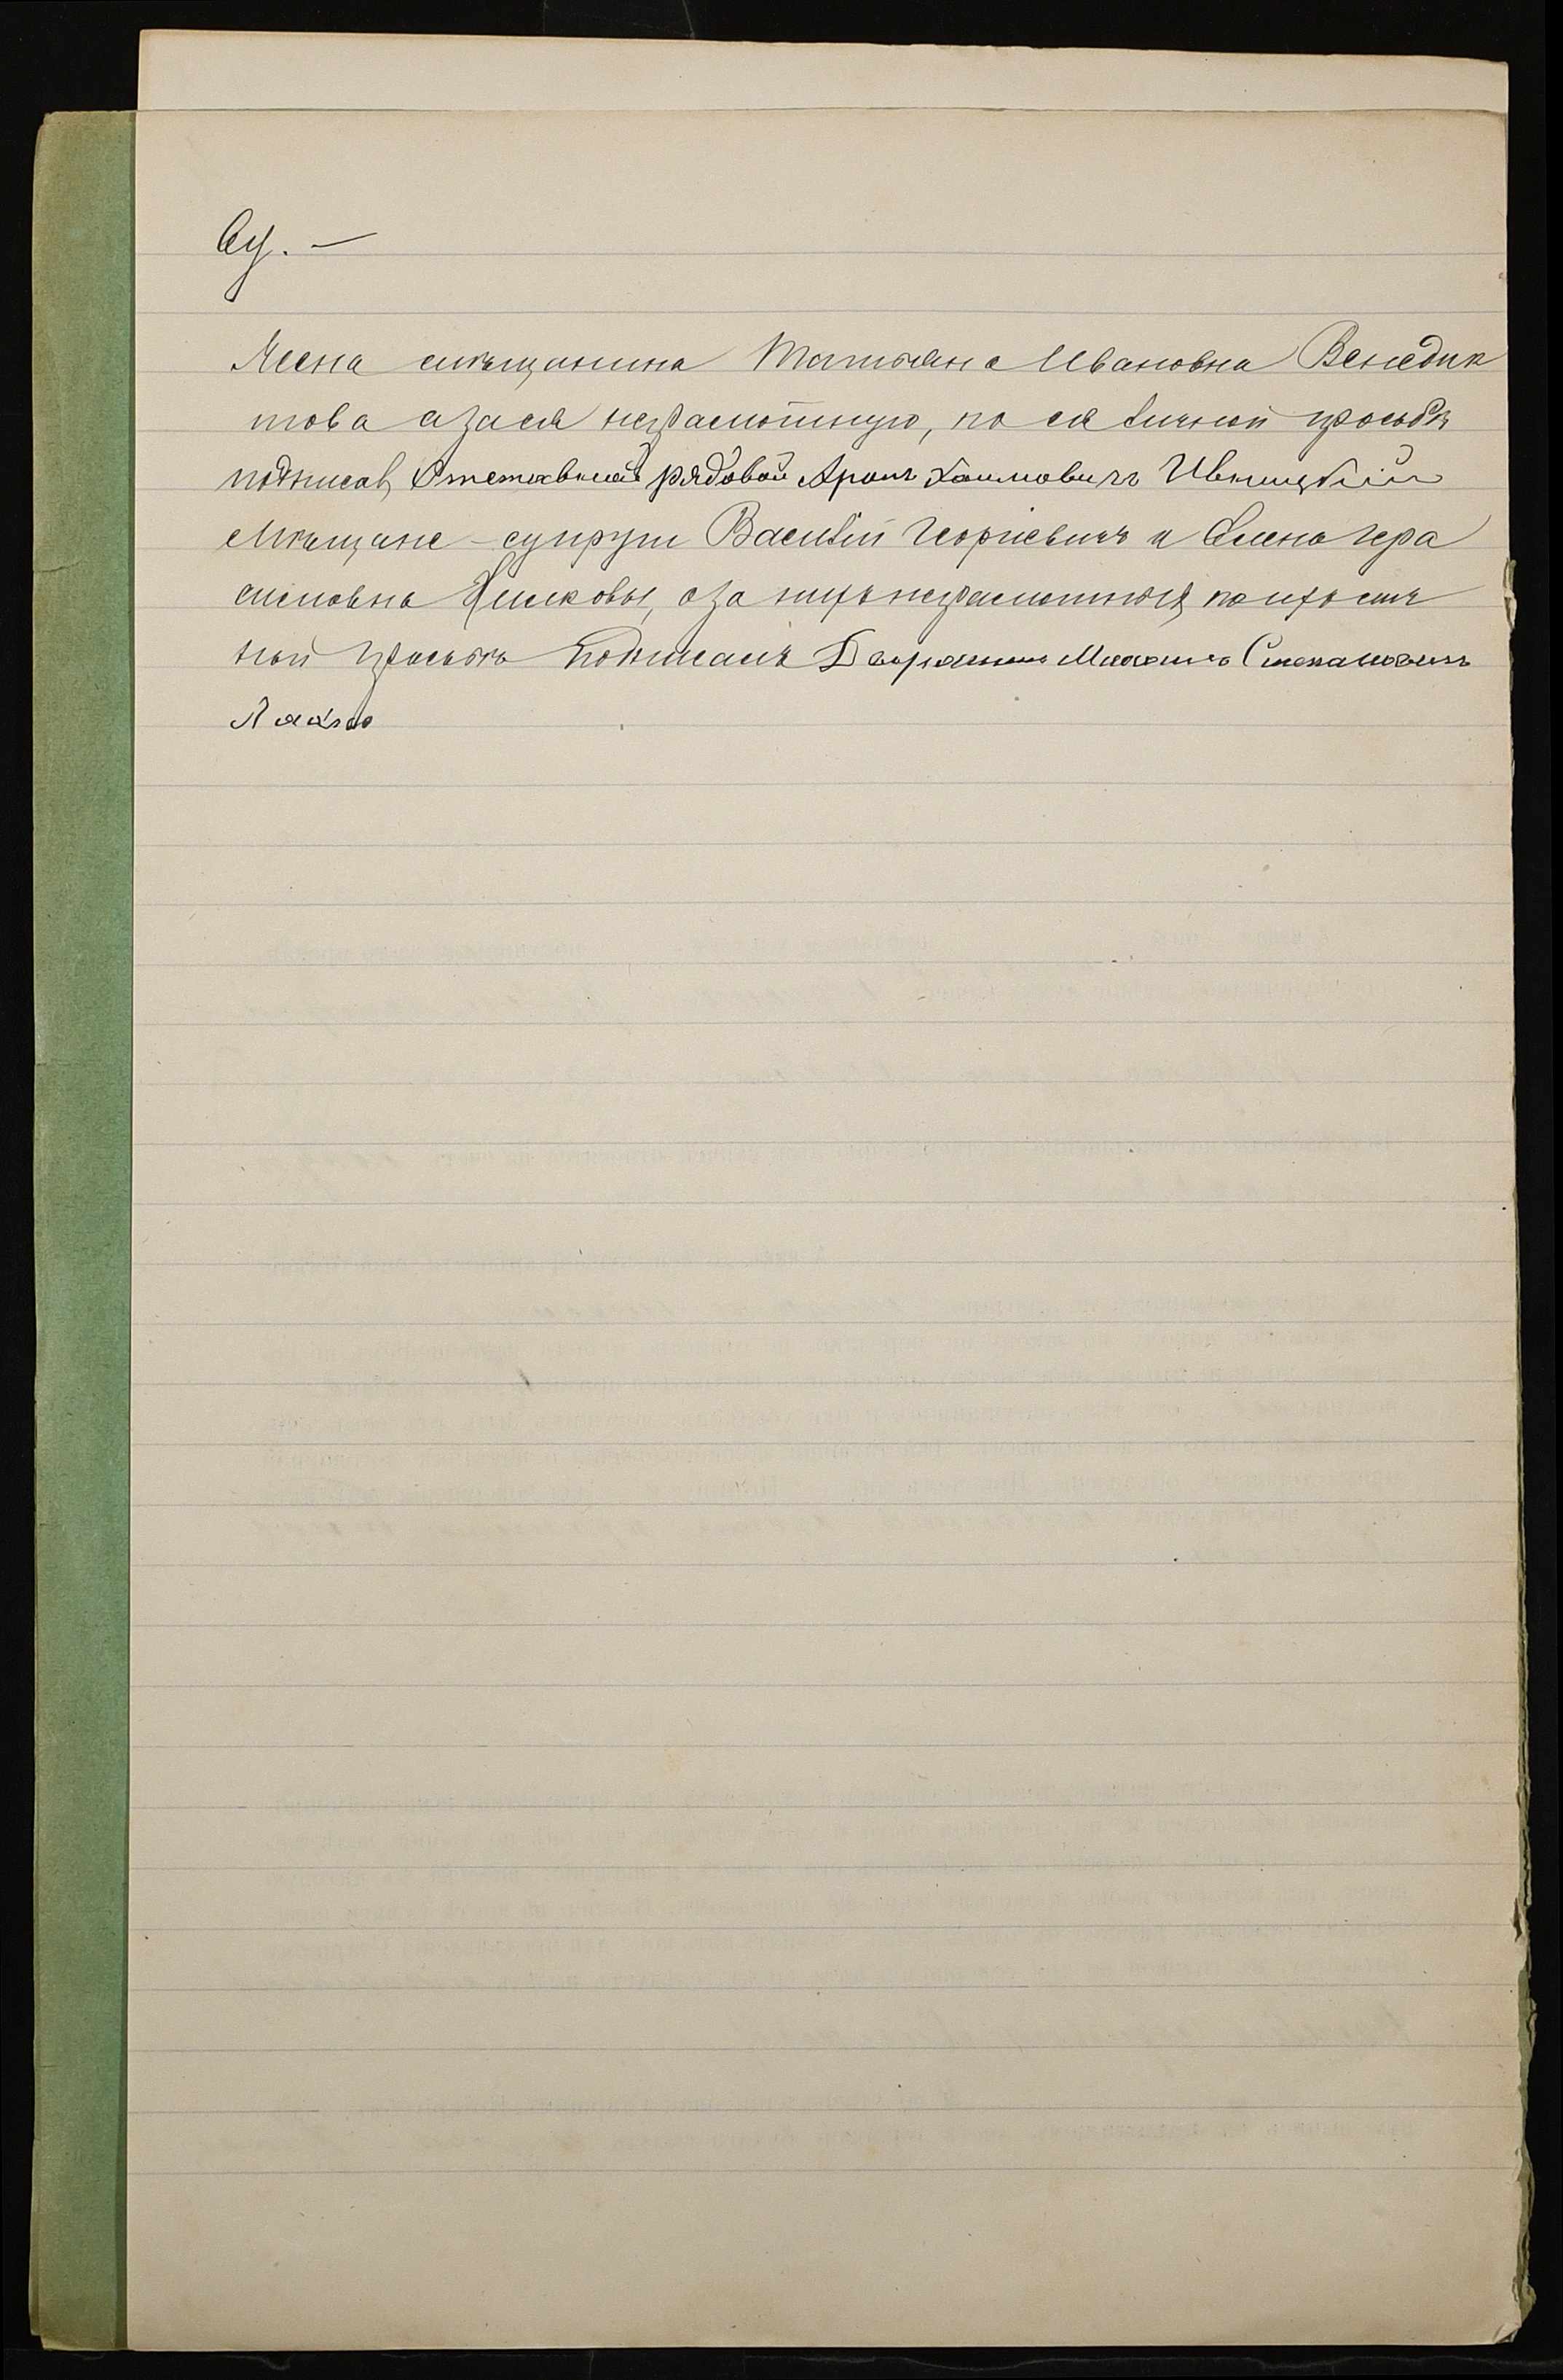 ву. —
Жена мѣщанина Татьяна Ивановна Венедик
това а за ея неграмотную, по ея личной просьбѣ
подписавъ Отставной рядовой Аронъ Хаимовичъ Ивницкій
Мѣщане - супруги Василій Георгіевичъ и Елена Гера
симовна, а за нихъ неграмотныхъ, по ихъ лич
ной просьбѣ подписалъ Дворянинъ Михаилъ Степановичъ